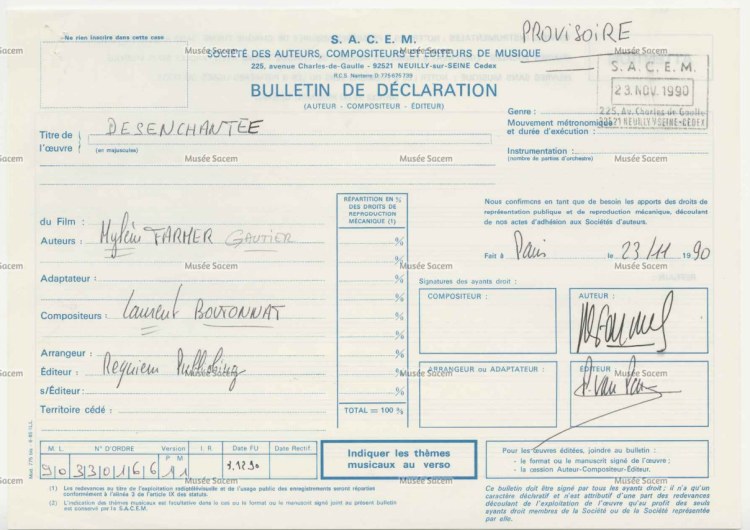 Ne rien inscrire dans cette case
PROVISOIRE
S. A. C. E. M.
SOCIÉTÉ DES AUTEURS, COMPOSITEURS ET ÉDITEURS DE MUSIQUE
225, avenue Charles-de-Gaulle - 92521 NEUILLY-sur-SEINE Cedex
R.C.S. Nanterre D 775 675 739
BULLETIN DE DÉCLARATION
(AUTEUR - COMPOSITEUR - ÉDITEUR)
S. A. C. E. M.
23. NOV. 1990
225, Av. Charles de Gaulle
92521 NEUILLY S/SEINE-CEDEX
Genre :
Mouvement métronomique
et durée d'exécution :
Titre de l'œuvre
DESENCHANTÉE
(en majuscules)
Instrumentation :
(nombre de parties d'orchestre)
Musée Sacem
RÉPARTITION EN %
DES DROITS DE
REPRODUCTION
MÉCANIQUE (1)
Nous confirmons en tant que de besoin les apports des droits de
représentation publique et de reproduction mécanique, découlant
de nos actes d'adhésion aux Sociétés d'auteurs.
du Film :
Auteurs : Mylène FARMER GAUTIER
%
Fait à Paris le 23/11 1990
Adaptateur :
%
Signatures des ayants droit :
Compositeurs : Laurent BOUTONNAT
%
COMPOSITEUR :
AUTEUR :
Arrangeur :
%
Éditeur : Requiem Publishing
%
ARRANGEUR ou ADAPTATEUR :
ÉDITEUR
s/Éditeur :
%
Territoire cédé :
TOTAL = 100 %
M. L.
N° D'ORDRE
Version
I. R.
Date FU
Date Rectif
P M
90 330166 11
1.12.90
Indiquer les thèmes
musicaux au verso
Pour les œuvres éditées, joindre au bulletin :
- le format ou le manuscrit signé de l'œuvre ;
- la cession Auteur-Compositeur-Éditeur.
(1) Les redevances au titre de l'exploitation radiotélévisuelle et de l'usage public des enregistrements seront réparties
conformément à l'alinéa 3 de l'article IX des statuts.
(2) L'indication des thèmes musicaux est facultative dans le cas où le format ou le manuscrit signé joint au présent bulletin
est conservé par la S.A.C.E.M.
Ce bulletin doit être signé par tous les ayants droit ; il n'a qu'un
caractère déclaratif et n'est attributif d'une part des redevances
découlant de l'exploitation de l'œuvre qu'au profit des seuls
ayants droit membres de la Société ou de la Société représentée
par elle.